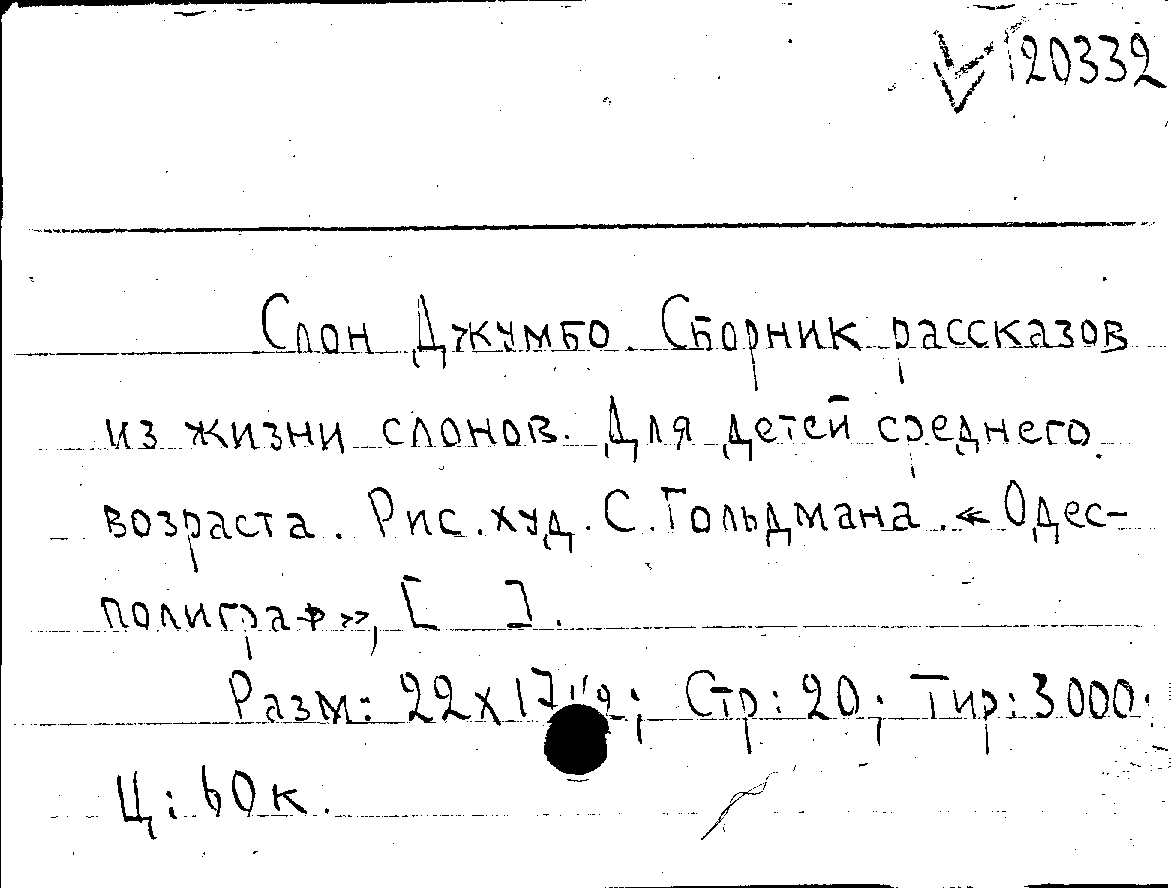 20332
Слон Джумбо. Сборник рассказов
из жизни слонов. Для детей среднего
возраста. Рис. худ. С. Гольдмана. «Одес-
полиграф», [ ].
Разм: 22х17 1/2; Стр: 20; Тир: 3000;
Ц: 60к.